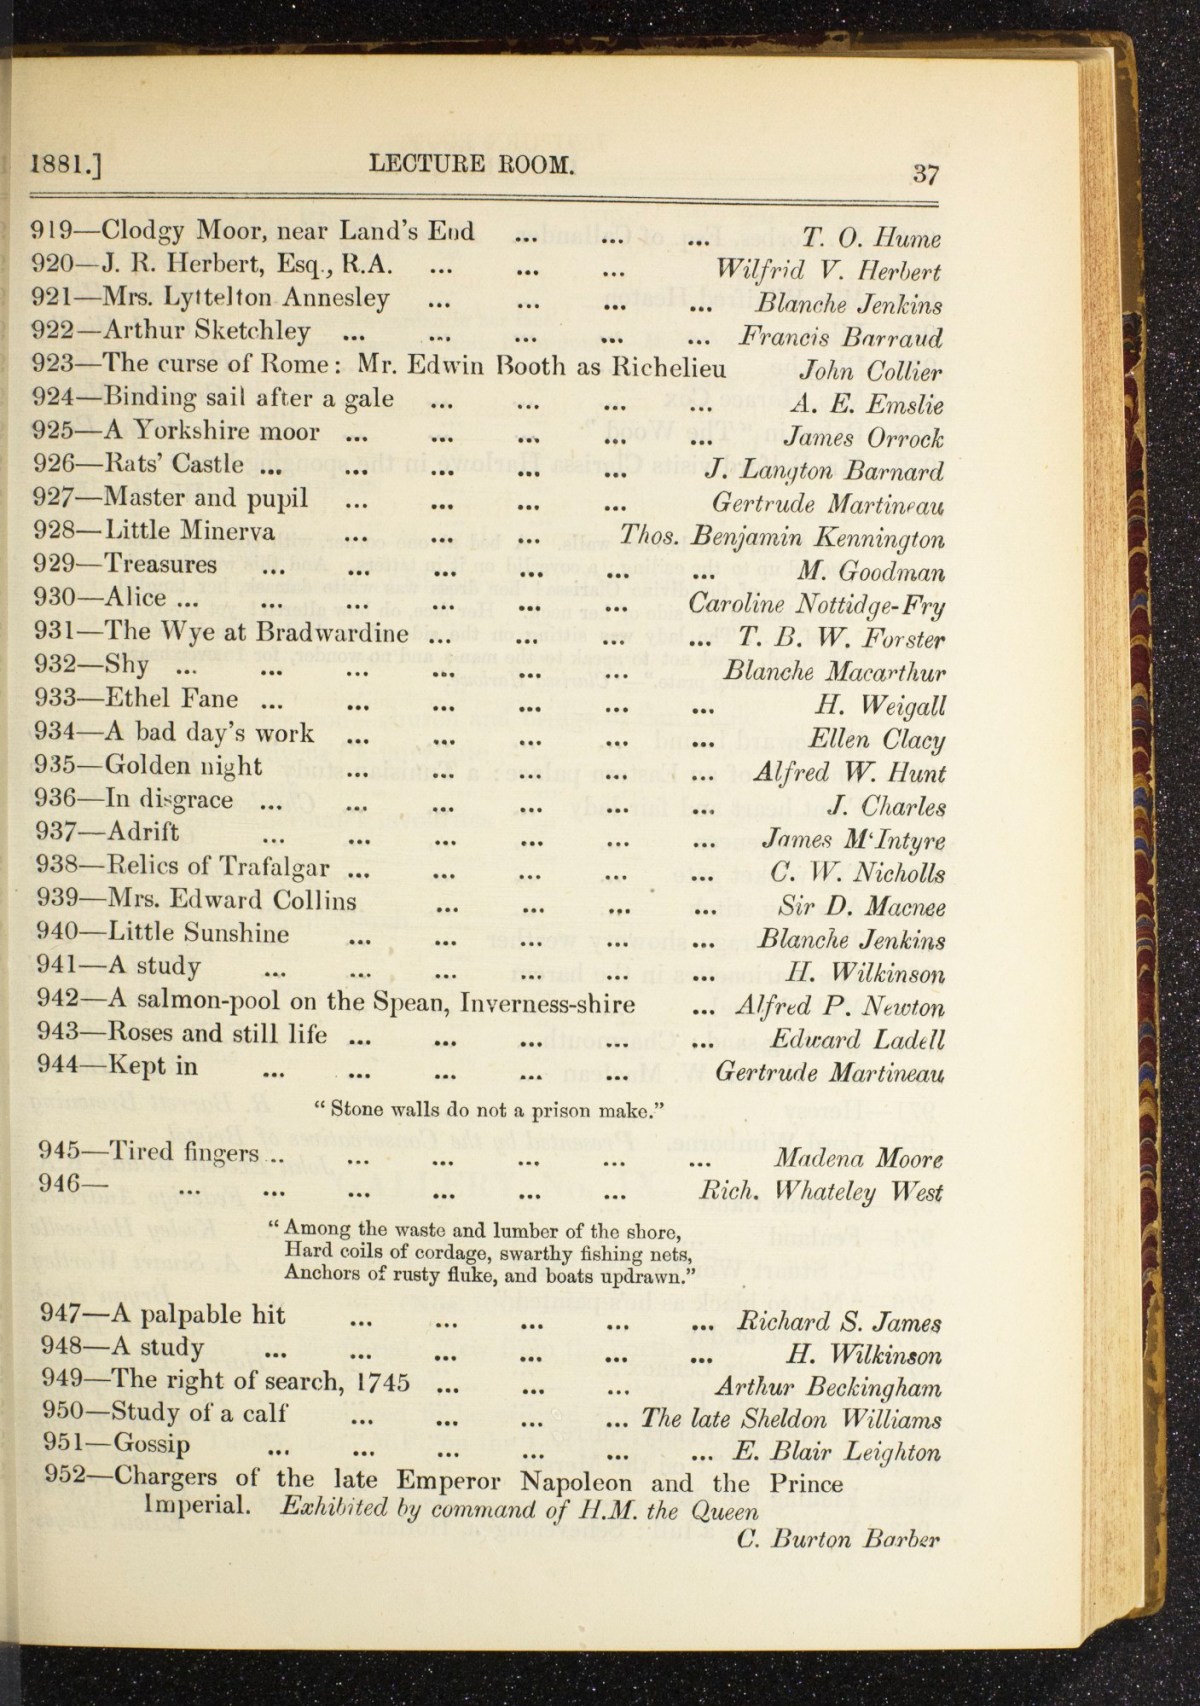 1881.] LECTURE ROOM. 37
919—Clodgy Moor, near Land's End ... ... ... T. O. Hume
920—J. R. Herbert, Esq., R.A. ... ... ... Wilfrid V. Herbert
921—Mrs. Lyttelton Annesley ... ... ... ... Blanche Jenkins
922—Arthur Sketchley ... ... ... ... ... Francis Barraud
923—The curse of Rome: Mr. Edwin Booth as Richelieu John Collier
924—Binding sail after a gale ... ... ... ... A. E. Emslie
925—A Yorkshire moor ... ... ... ... ... James Orrock
926—Rats' Castle ... ... ... ... ... J. Langton Barnard
927—Master and pupil ... ... ... ... Gertrude Martineau
928—Little Minerva ... ... ... Thos. Benjamin Kennington
929—Treasures ... ... ... ... ... ... M. Goodman
930—Alice ... ... ... ... ... ... Caroline Nottidge-Fry
931—The Wye at Bradwardine ... ... ... ... T. B. W. Forster
932—Shy ... ... ... ... ... ... Blanche Macarthur
933—Ethel Fane ... ... ... ... ... ... H. Weigall
934—A bad day's work ... ... ... ... ... Ellen Clacy
935—Golden night ... ... ... ... ... Alfred W. Hunt
936—In disgrace ... ... ... ... ... ... J. Charles
937—Adrift ... ... ... ... ... ... James M'Intyre
938—Relics of Trafalgar ... ... ... ... ... C. W. Nicholls
939—Mrs. Edward Collins ... ... ... ... Sir D. Macnee
940—Little Sunshine ... ... ... ... ... Blanche Jenkins
941—A study ... ... ... ... ... ... H. Wilkinson
942—A salmon-pool on the Spean, Inverness-shire ... Alfred P. Newton
943—Roses and still life ... ... ... ... ... Edward Ladell
944—Kept in ... ... ... ... ... Gertrude Martineau
"Stone walls do not a prison make."
945—Tired fingers .. ... ... ... ... ... Madena Moore
946— ... ... ... ... ... ... Rich. Whateley West
"Among the waste and lumber of the shore,
Hard coils of cordage, swarthy fishing nets,
Anchors of rusty fluke, and boats updrawn."
947—A palpable hit ... ... ... ... ... Richard S. James
948—A study ... ... ... ... ... ... H. Wilkinson
949—The right of search, 1745 ... ... ... Arthur Beckingham
950—Study of a calf ... ... ... ... The late Sheldon Williams
951—Gossip ... ... ... ... ... ... E. Blair Leighton
952—Chargers of the late Emperor Napoleon and the Prince
Imperial. Exhibited by command of H.M. the Queen
C. Burton Barber